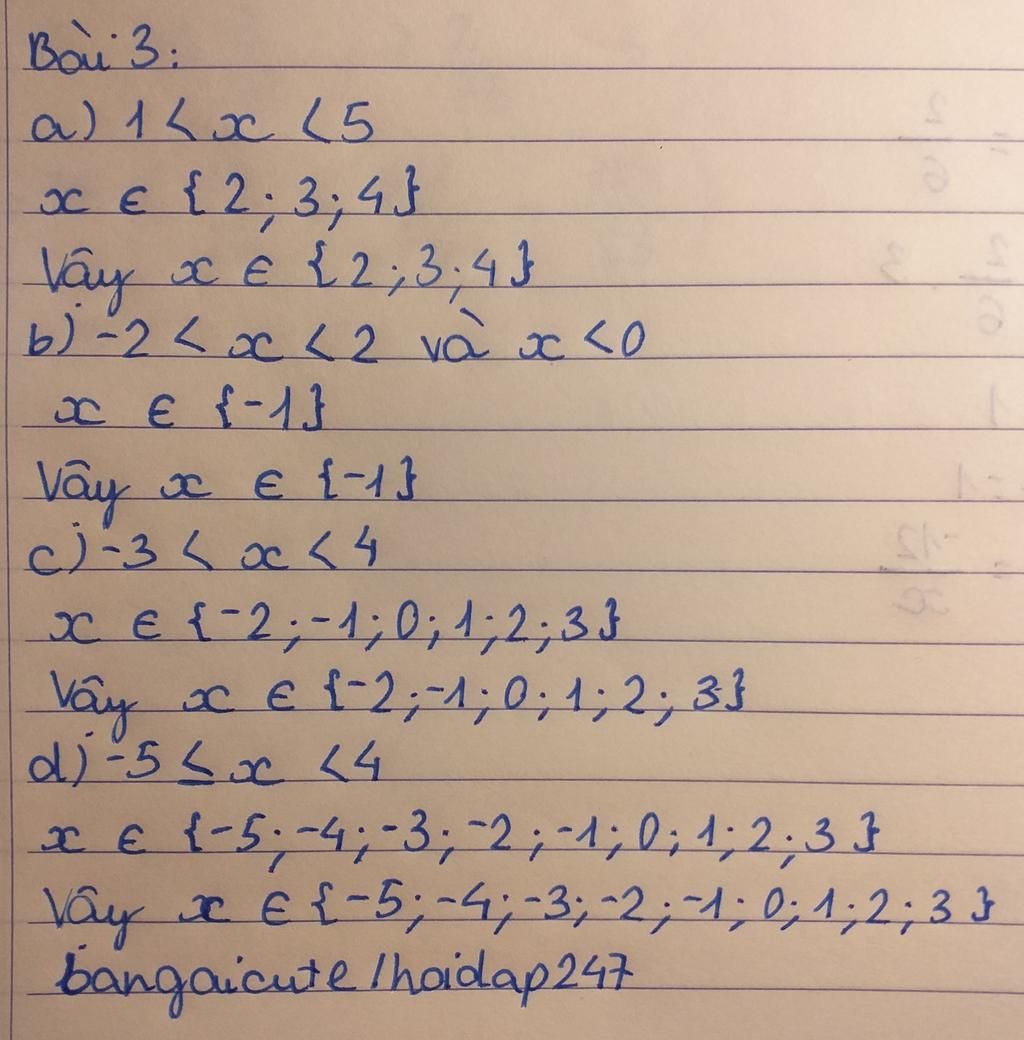 Bài 3:
a) 1 < x < 5
x ∈ {2; 3; 4}
Vậy x ∈ {2; 3; 4}
b) -2 < x < 2 và x < 0
x ∈ {-1}
Vậy x ∈ {-1}
c) -3 < x < 4
x ∈ {-2; -1; 0; 1; 2; 3}
Vậy x ∈ {-2; -1; 0; 1; 2; 3}
d) -5 ≤ x < 4
x ∈ {-5; -4; -3; -2; -1; 0; 1; 2; 3}
Vậy x ∈ {-5; -4; -3; -2; -1; 0; 1; 2; 3}
bangaicute/hoidap247